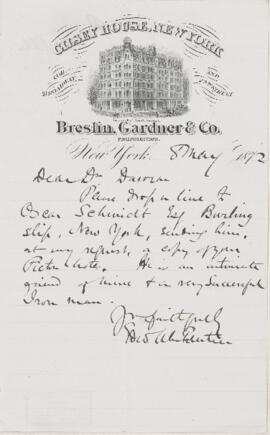 GILSEY HOUSE, NEW YORK
COR BROADWAY
AND
Breslin, Gardner & Co.
PROPRIETORS.
New York. 8 May 1872
Dear Dr Dawson
Please drop a line to
Oscar Schmidt Esq Burling
slip, New York, sending him,
at my request, a copy of your
Pictou Note. He is an intimate
friend of mine & a very successful
Iron man.
Yrs faithfully